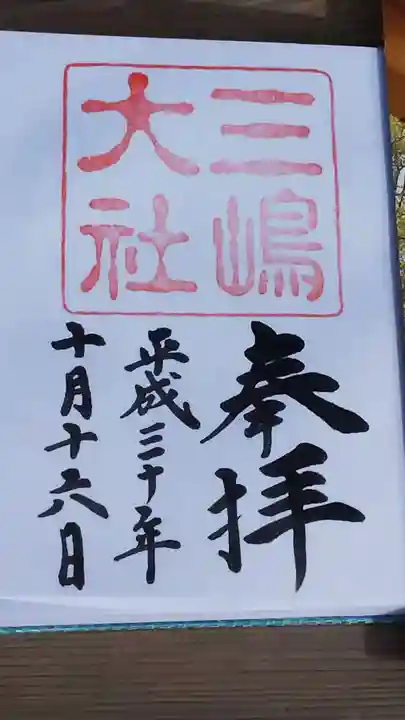 三嶋
大社
奉拝
平成三十年
十月十六日